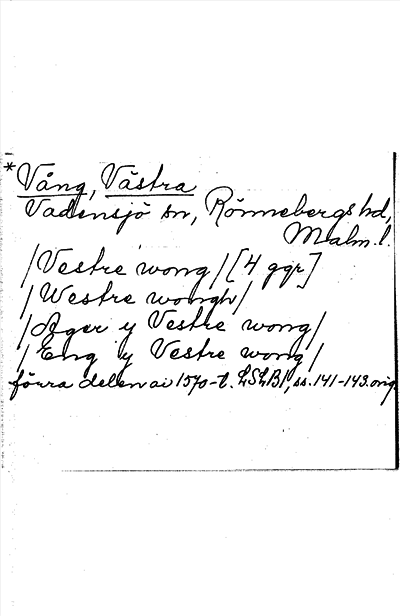 * Vång, Västra
Vadensjö sn, Rönnebergs hd,
Malm. l.
/Vestre wong/ [4 ggr]
/Westre wongh/
/Ager y Vestre wong/
/Eng y Vestre wong/
förra delen av 1570-t. LSLB1, ss. 141-143. orig.